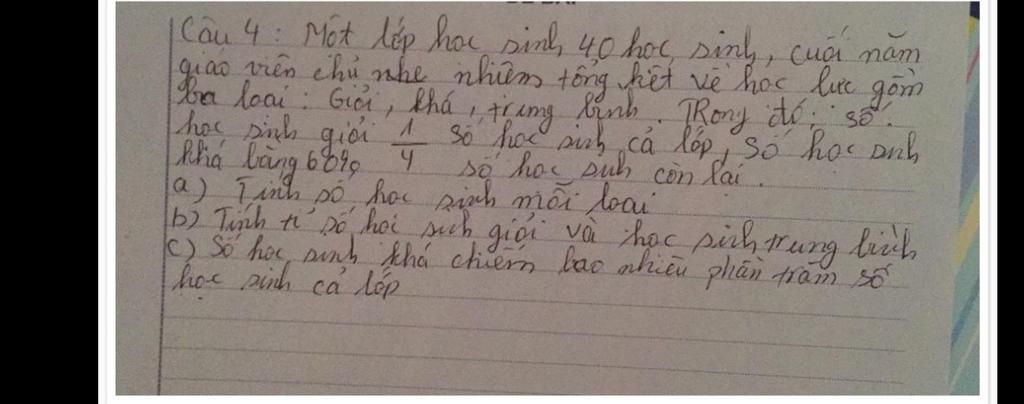 Câu 4 : Một lớp học sinh 40 học sinh, cuối năm
giáo viên chủ nhe nhiêm tổng kết về học lực gồm
ba loại : Giỏi, khá, trung bình. TRong đó : số
học sinh giỏi 1/4 số học sinh cả lớp, số học sinh
khá bằng 60% số học sinh còn lại.
a) Tính số học sinh mỗi loại
b) Tính tỉ số học sinh giỏi và học sinh trung bình
c) Số học sinh khá chiếm bao nhiêu phần trăm số
học sinh cả lớp